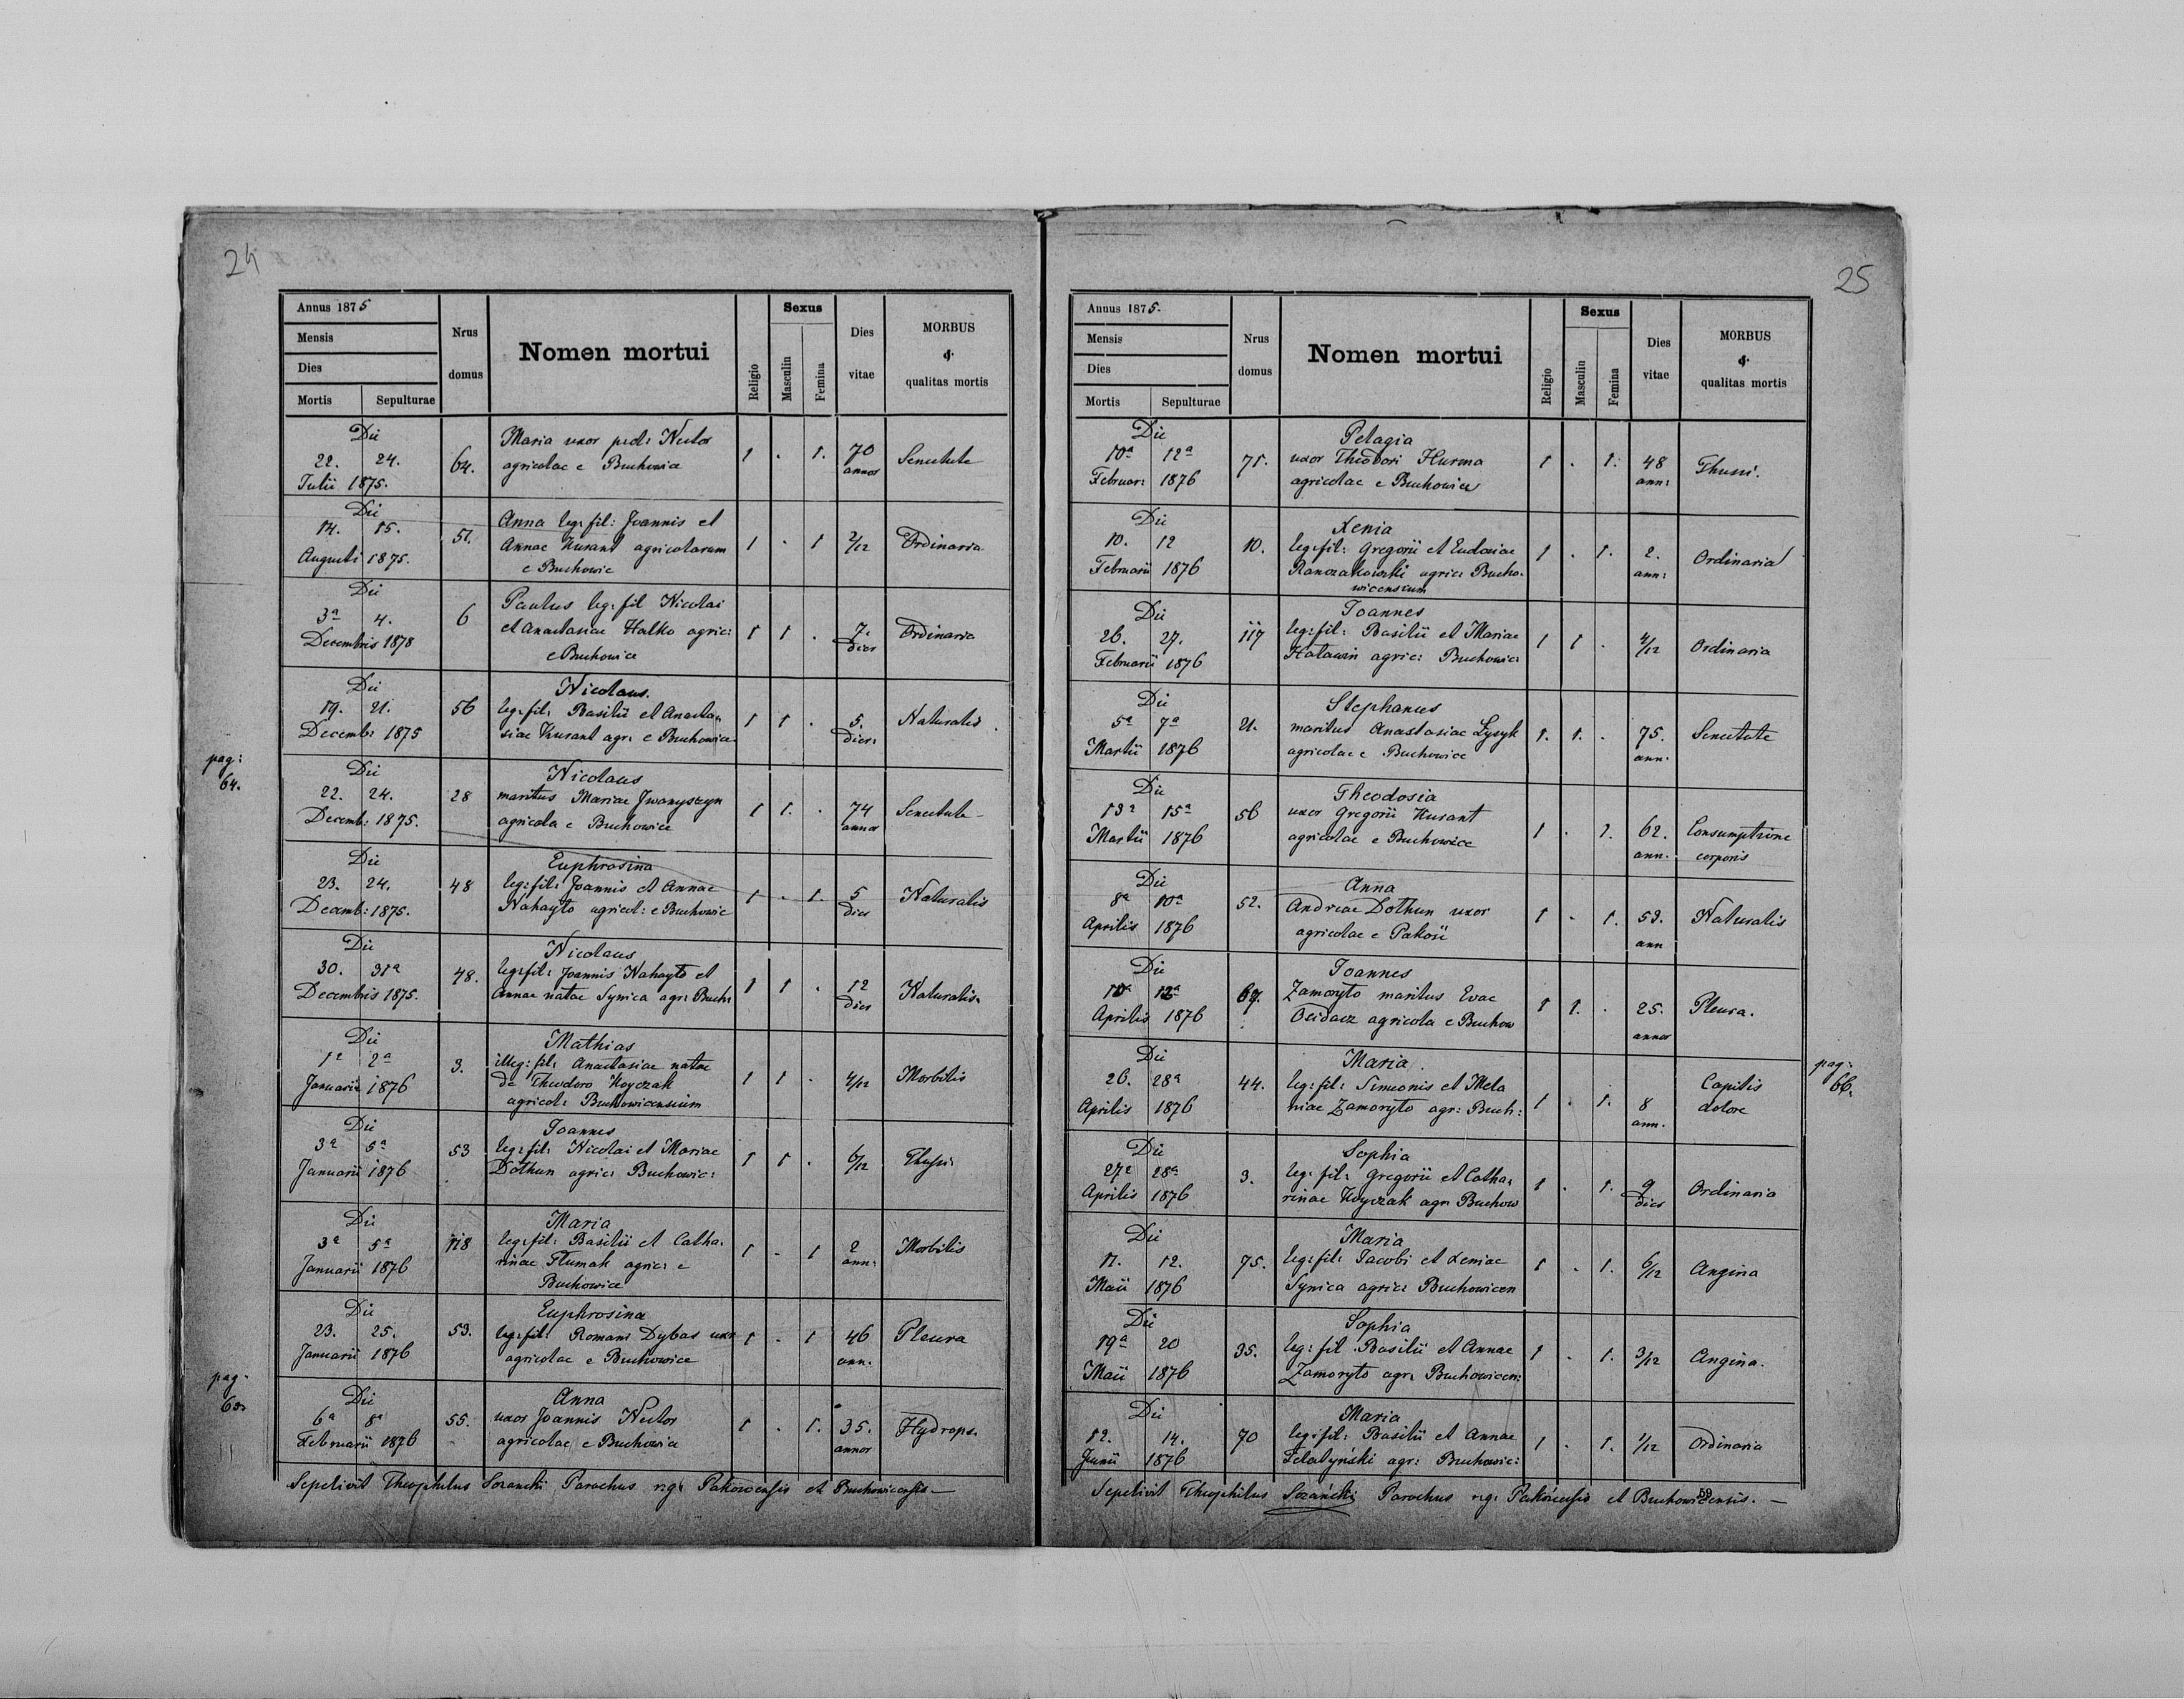 24
Annus 1875
Mensis
Dies
Mortis Sepulturae
Nrus domus
Nomen mortui
Religio
Sexus
Masculin
Femina
Dies vitae
MORBUS & qualitas mortis
Die
22. 24. 64. Maria uxor pred: Nestor 1 . 1. 70 annor Senectute
Julii 1875. agricolae e Buchowice
Die
14. 15. 51. Anna leg: fil: Joannis et 1 . 1 2/12 Ordinaria
Augusti 1875. Annae Kusant agricolarum
e Buchowic
Die
3a 4. 6 Paulus leg: fil Nicolai 1 1 . 7. dies Ordinaria
Decembris 1878 et Anastasiae Halko agric:
e Buchowice
Die
19. 21. 56 Nicolaus. 1 1 . 5. dier: Naturalis
Decemb: 1875 leg: fil: Basilii et Anasta-
siae Kusant agr: e Buchowice
pag: 64.
Die
22. 24. 28 Nicolaus 1 1. . 74 annor Senectute
Decemb: 1875. maritus Mariae Iwanyszyn
agricola e Buchowice
Die
23. 24. 48 Euphrosina 1 . 1. 5 dies Naturalis
Decemb: 1875. leg: fil: Joannis et Annae
Nahayto agricol: e Buchowic
Die
30. 31a 48. Nicolaus 1 1 . 12 dies Naturalis.
Decembris 1875. leg: fil: Joannis Nahayto et
Annae natae Synica agr: Buch:
Die
1a 2a 3. Mathias 1 1 . 4/12 Morbilis
Januarii 1876 illeg: fil: Anastasiae natae
de Theodoro Koyczak
agricol: Buchowicensium
Die
3a 5a 53 Joannes 1 1 . 6/12
Januarii 1876 leg: fil: Nicolai et Mariae
Dothun agric: Buchowic:
Die
3a 5a 118 Maria 1 . 1 2 ann: Morbilis
Januarii 1876 leg: fil: Basilii et Catha-
rinae Tlumak agric: e
Buchowice
Die
23. 25. 53. Euphrosina 1 . 1 46 ann. Pleura
Januarii 1876 leg: fil: Romani Dybas uxor
agricolae e Buchowice
pag.
Die
6a 8a 55. Anna 1 . 1. 35. annor Hydrops.
Februarii 1876 uxor Joannis Nestor
agricolae e Buchowice
Sepelivit Theophilus Sozański Parochus r:g: Pakoscensis et Buchowicensis —
25
Annus 1875.
Mensis
Dies
Mortis Sepulturae
Nrus domus
Nomen mortui
Religio
Sexus
Masculin
Femina
Dies vitae
MORBUS & qualitas mortis
Die
10a 12a 71. Pelagia 1 . 1. 48 ann:
Februar: 1876 uxor Theodori Hurma
agricolae e Buchowice
Die
10. 12 10. Xenia 1 . 1. 2. ann: Ordinaria
Februarii 1876 leg: fil: Gregorii et Eudoxiae
Ranczakowski agric: Bucho-
wicensium
Die
26. 27. 117 Joannes 1 1 . 4/12 Ordinaria
Februarii 1876 leg: fil: Basilii et Mariae
Hatawin agric: Buchowic:
Die
5a 7a 21. Stephanus 1. 1. . 75. ann. Senectute
Martii 1876 maritus Anastasiae Łysyk
agricolae e Buchowice
Die
13a 15a 56 Theodosia 1 . 1. 62. ann. Consumptione corporis
Martii 1876 uxor Gregorii Kusant
agricolae e Buchowice
Die
8a 10a 52. Anna 1 . 1. 53. ann Naturalis
Aprilis 1876 Andreae Dothun uxor
agricolae e Pakość
Die
10a 12a 67. Joannes 1 1. . 25. annor Pleura.
Aprilis 1876 Zamoryto maritus Evae
agricola e Buchow
pag: 66.
Die
26. 28a 44. Maria. 1 . 1. 8 ann. Capitis dolore
Aprilis 1876 leg: fil: Simeonis et Mela
niae Zamoryto agr: Buch:
Die
27a 28a 3. Sophia 1 . 1. 9 dies Ordinaria
Aprilis 1876 leg: fil: Gregorii et Catha-
rinae Koyczak agr: Buchow
Die
11. 12. 75. Maria 1 . 1. 6/12 Angina
Maii 1876 leg: fil: Jacobi et Xeniae
Synica agric: Buchowicen
Die
19a 20 35. Sophia 1 . 1. 3/12 Angina.
Maii 1876 leg: fil. Basilii et Annae
Zamoryto agr: Buchowicen:
Die
12. 14. 70 Maria 1 . 1. 1/12 Ordinaria
Junii 1876 leg: fil: Basilii et Annae
Felatyński agr: Buchowic:
Sepelivit Theophilus Sozański Parochus r:g: Pakoscensis et Buchowicensis. —
59